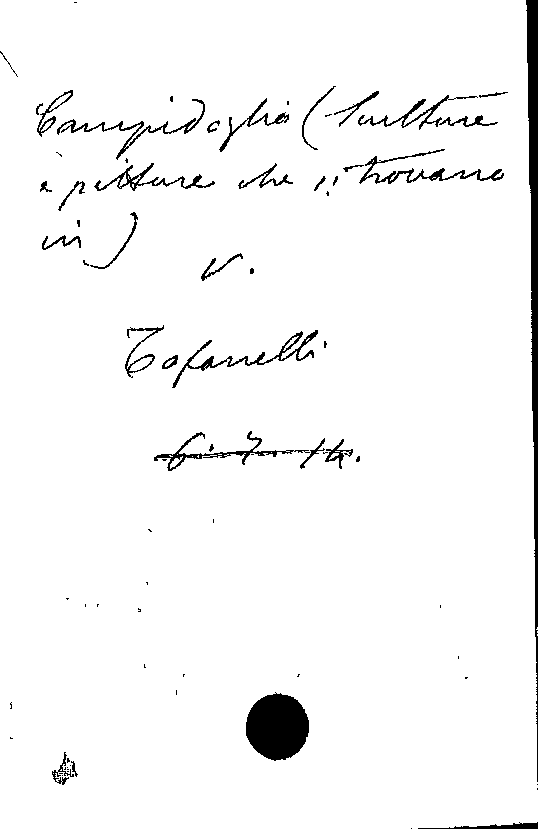 Campidoglio (Sculture
e pitture che si trovano
in)
V.
Tofanelli
6. 7. 14.